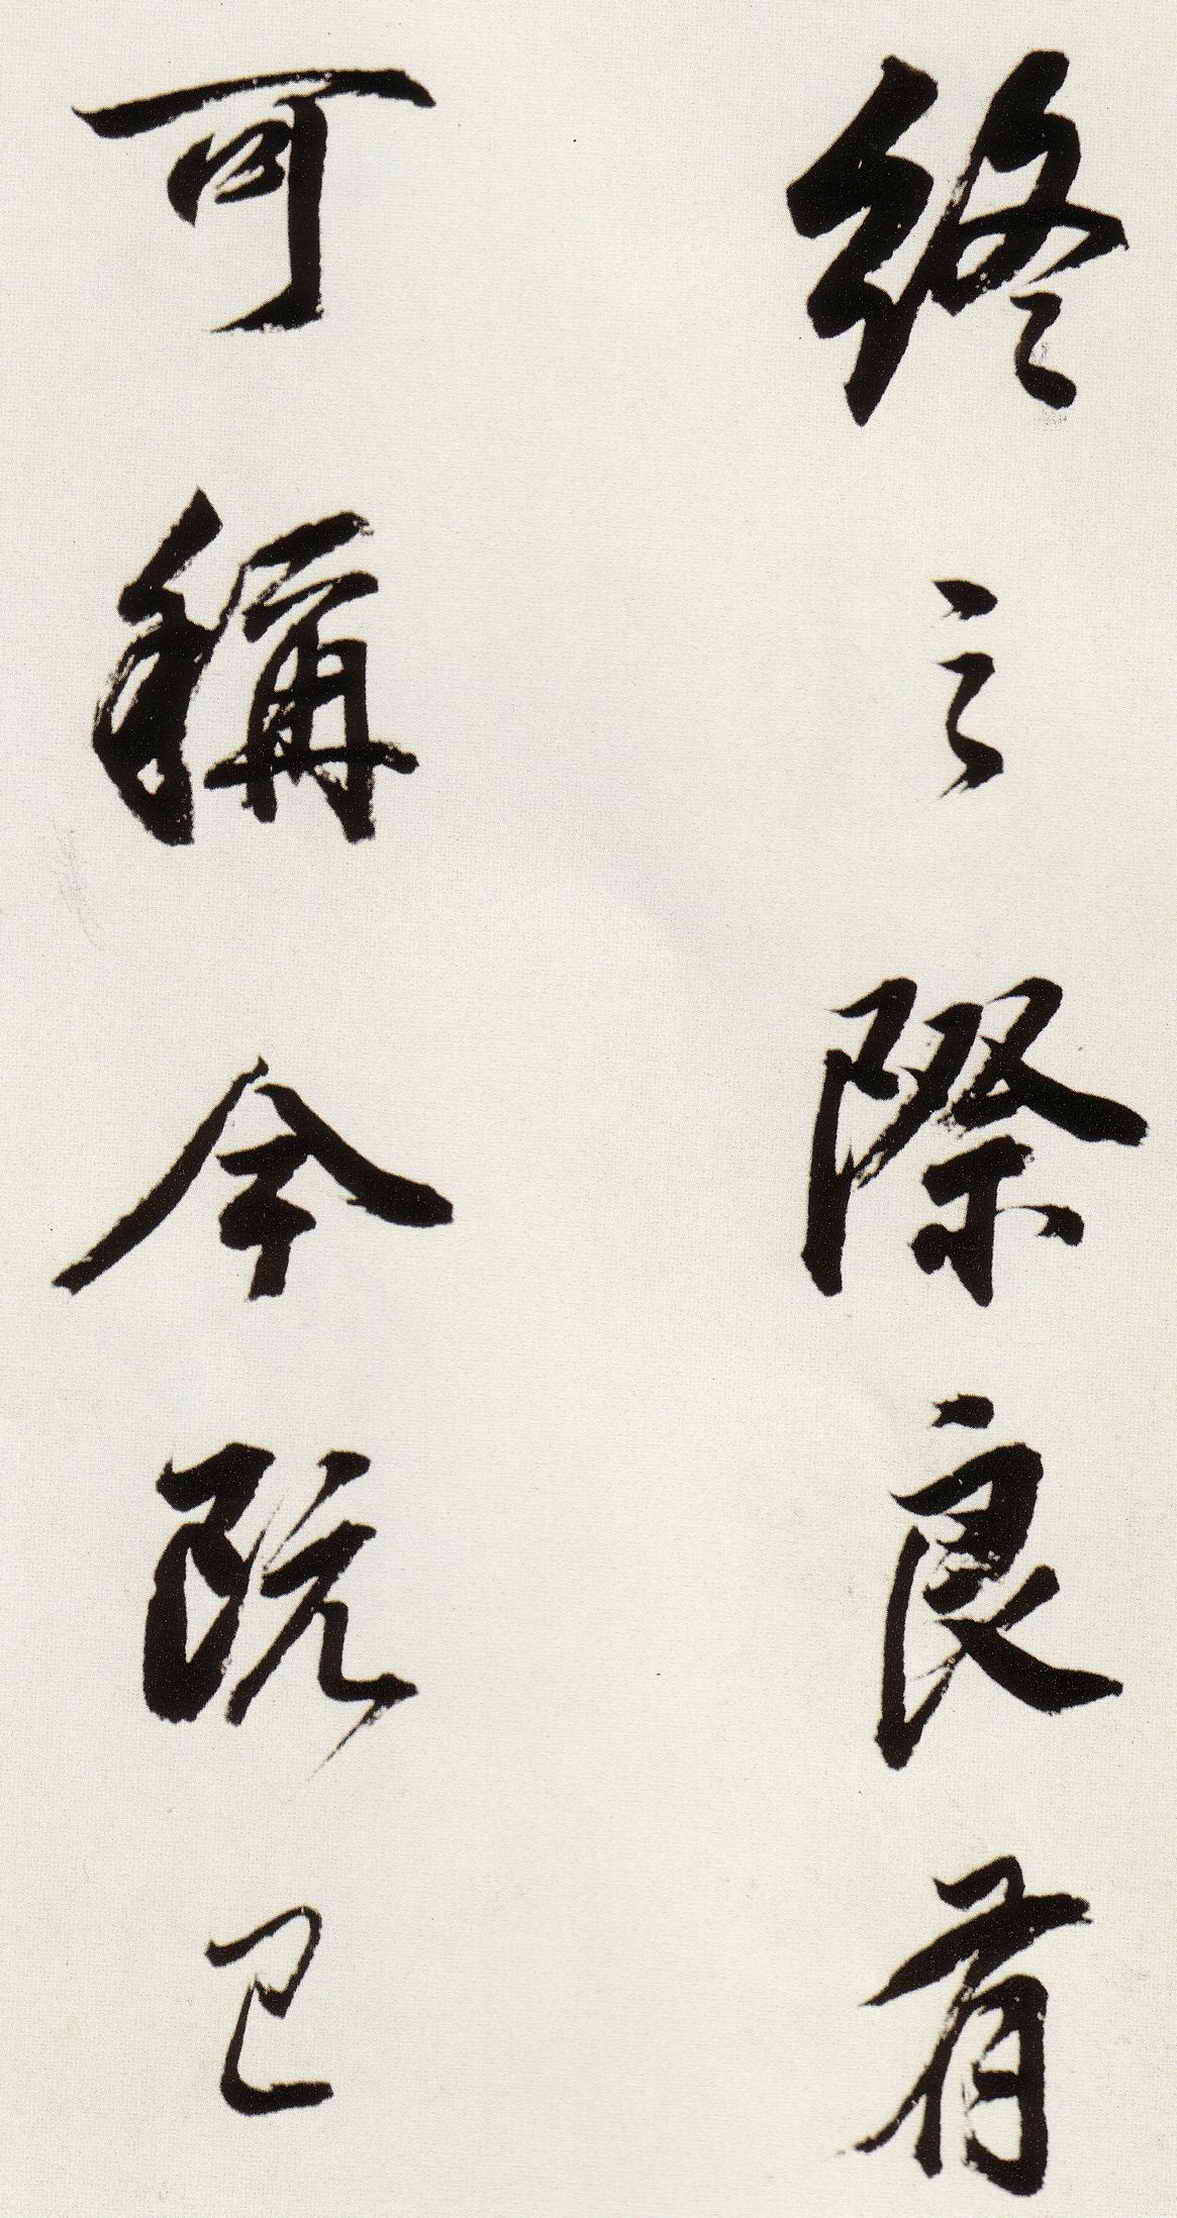 終之際良有
可稱今阮已